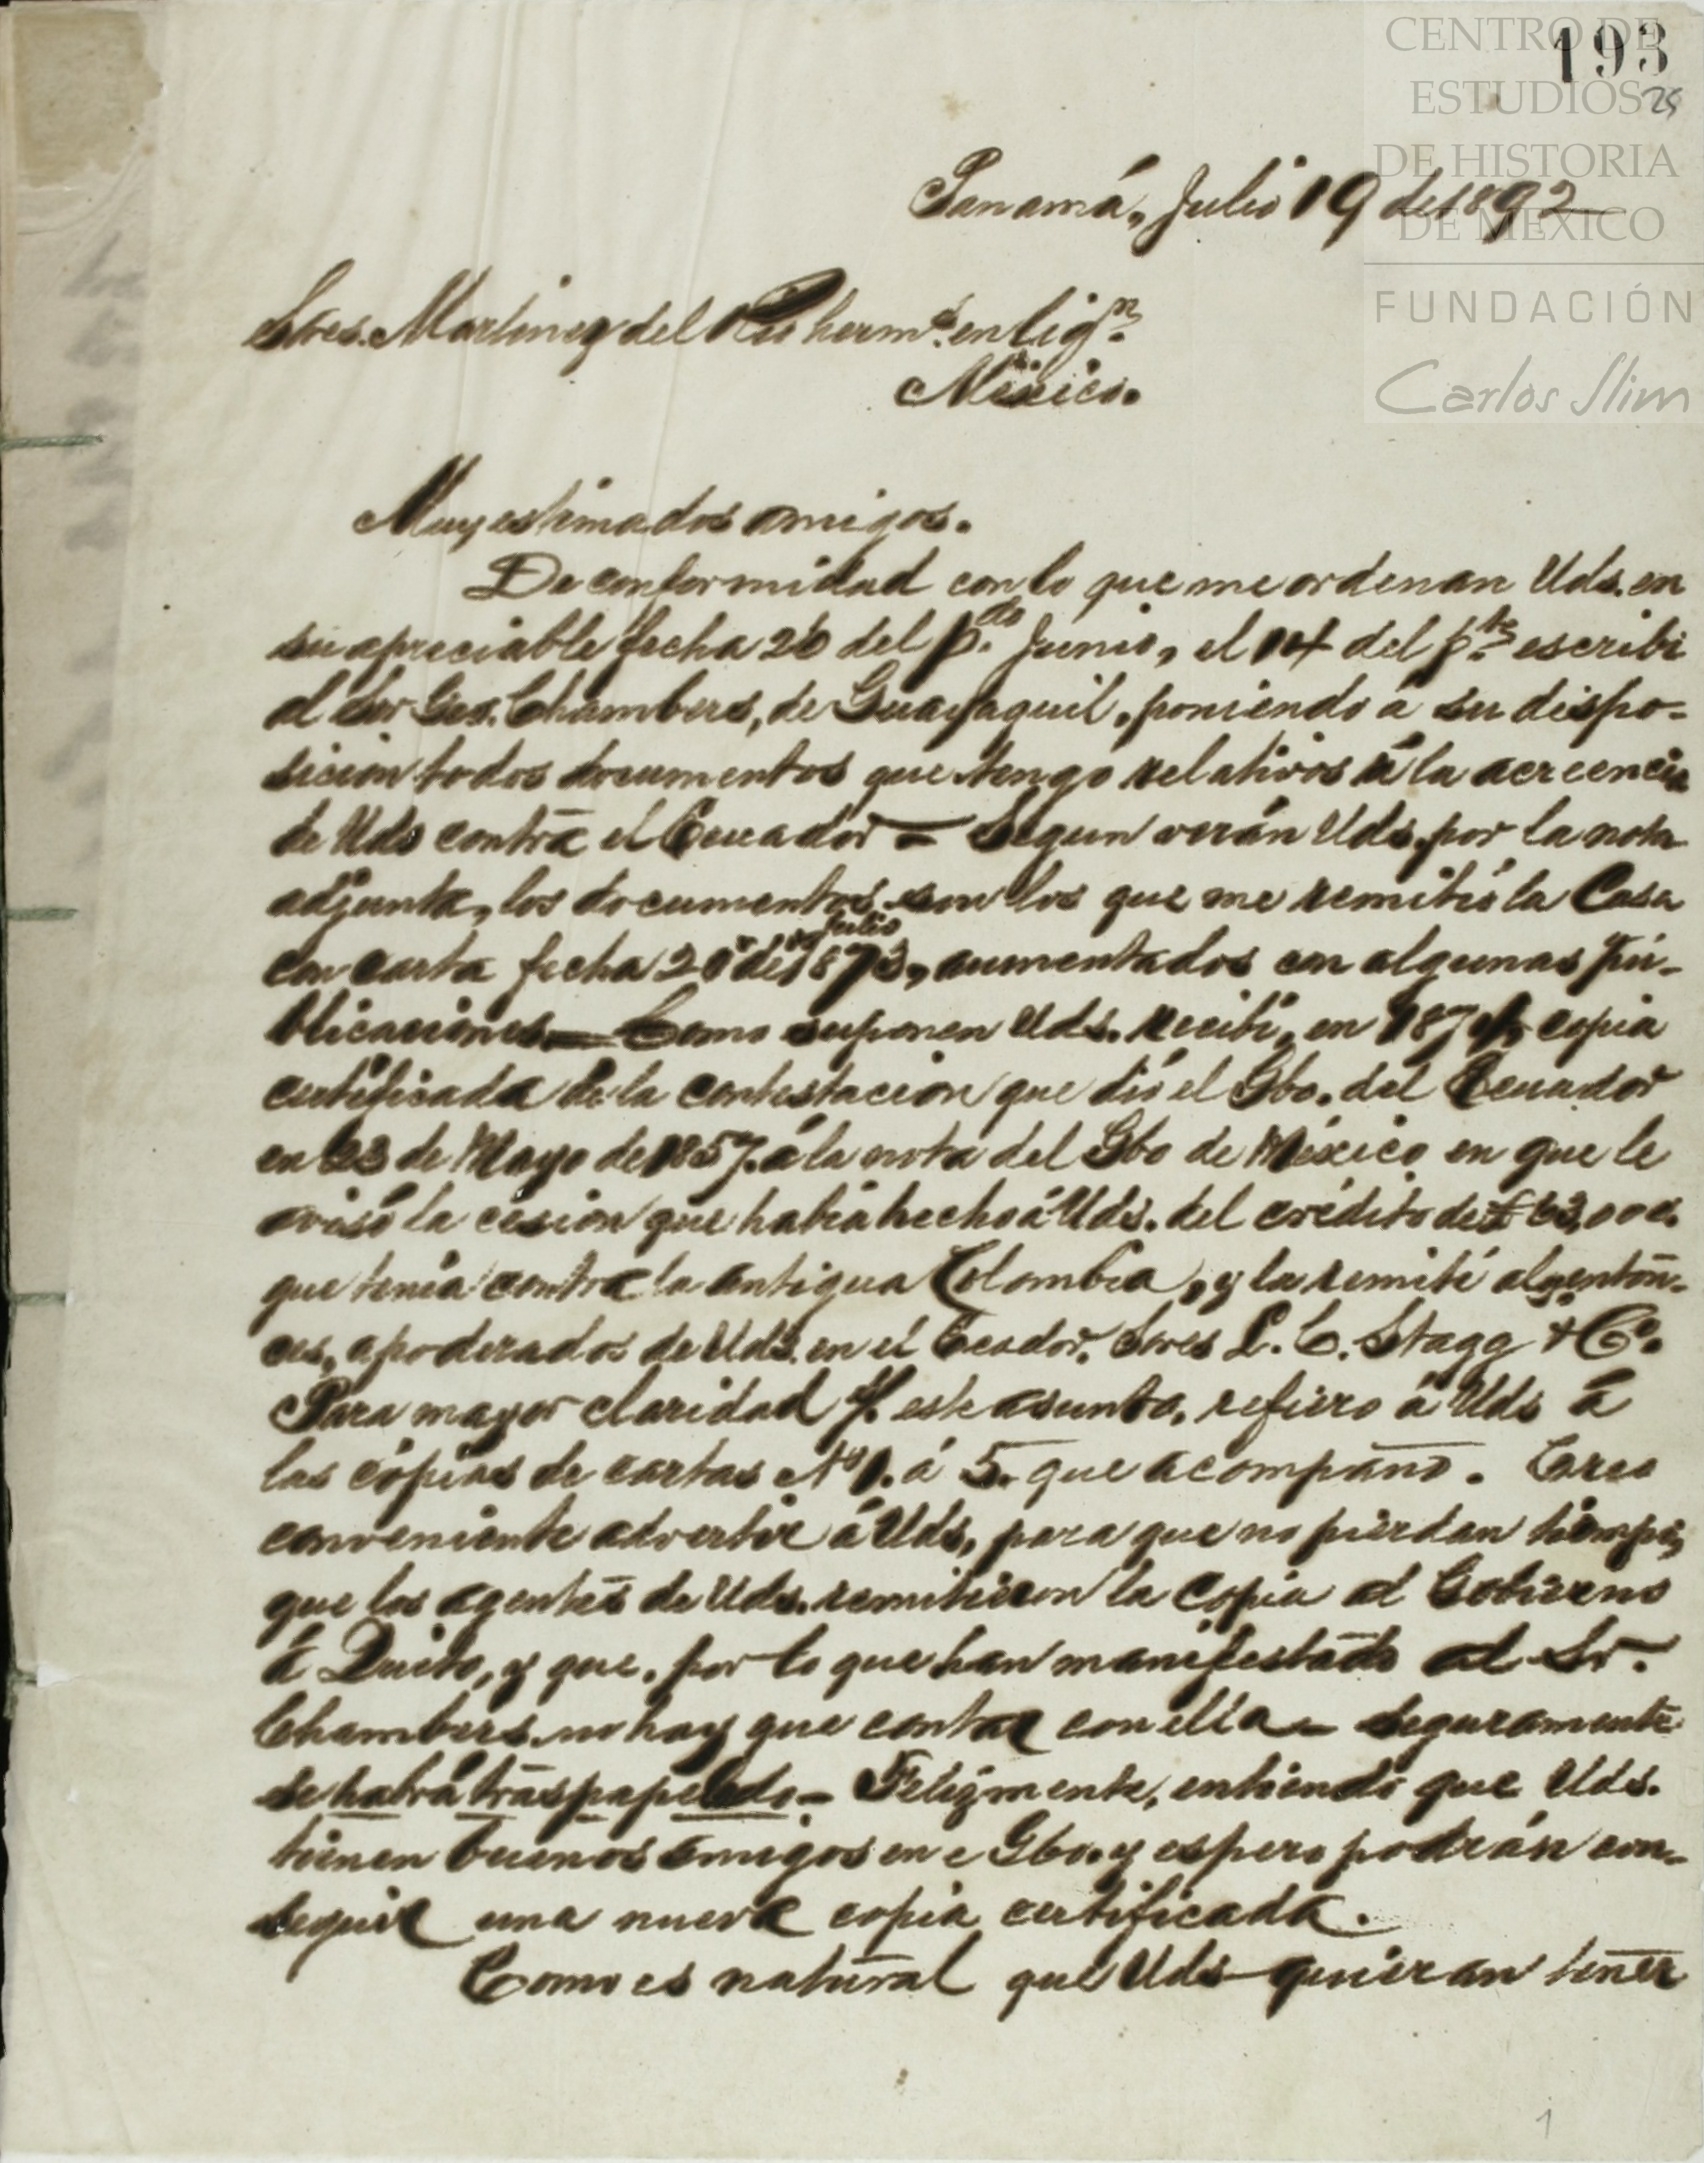 193
25
CENTRO DE
ESTUDIOS
DE HISTORIA
DE MÉXICO
FUNDACIÓN
Carlos Slim
Panamá, Julio 19 de 1892
Sres. Martinez del Rio herms. en liqn.
México.
Muy estimados amigos.
De conformidad con lo que me ordenan Uds. en
su apreciable fecha 20 del pdo. Junio, el 14 del pte. escribí
al Sor Geo. Chambers, de Guayaquil, poniendo á su dispo-
sicion todos documentos que tengo relativos á la acreencia
de Uds contra el Ecuador — Segun verán Uds. por la nota
adjunta, los documentos son los que me remitió la Casa
con carta fecha 20 de Julio 1873, aumentados con algunas pu-
blicaciones. — Como suponen Uds. recibí, en 1874, copia
certificada de la contestacion que dió el Gbo. del Ecuador
en 23 de Mayo de 1857. á la nota del Gbo de México en que le
avisó la cesion que habia hecho á Uds. del crédito de £ 63,000.
que tenia contra la antigua Colombia, y la remití a los, enton-
ces, apoderados de Uds. en el Ecador. Sres L. C. Stagg & Co.
Para mayor claridad de este asunto, refiero á Uds á
las copias de cartas No 1. á 5. que acompaño. Creo
conveniente advertir á Uds, para que no pierdan tiempo,
que los agentes de Uds. remitieron la Copia al Gobierno
á Quito, y que, por lo que han manifestado al Sr.
Chambers. no hay que contar con ella — seguramente
se habrá traspapelado — Felizmente, entiendo que Uds.
tienen buenos amigos en e Gbo. y espero podrán con-
seguir una nueva copia certificada.
Como es natural que Uds quieran tener
1